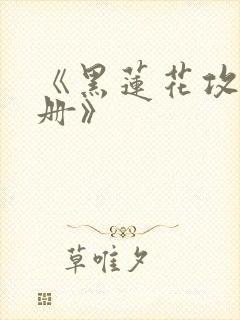 《黑蓮花攻
册》
草唯夕